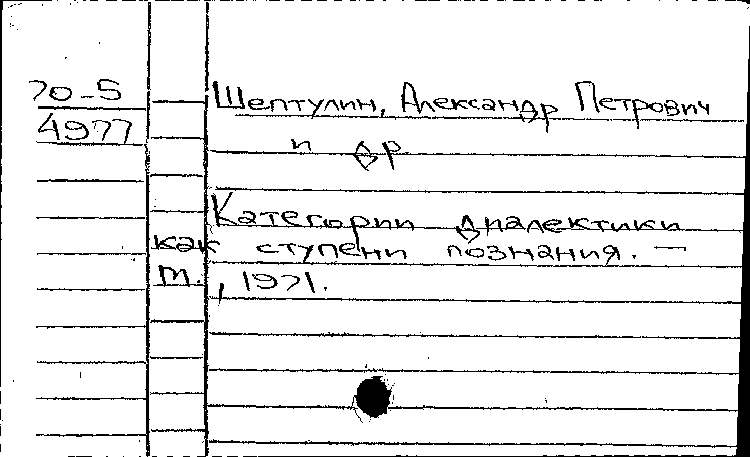 70-5
4977
Шептулин, Александр Петрович
и др
Категории диалектики
как ступени познания. —
М., 1971.